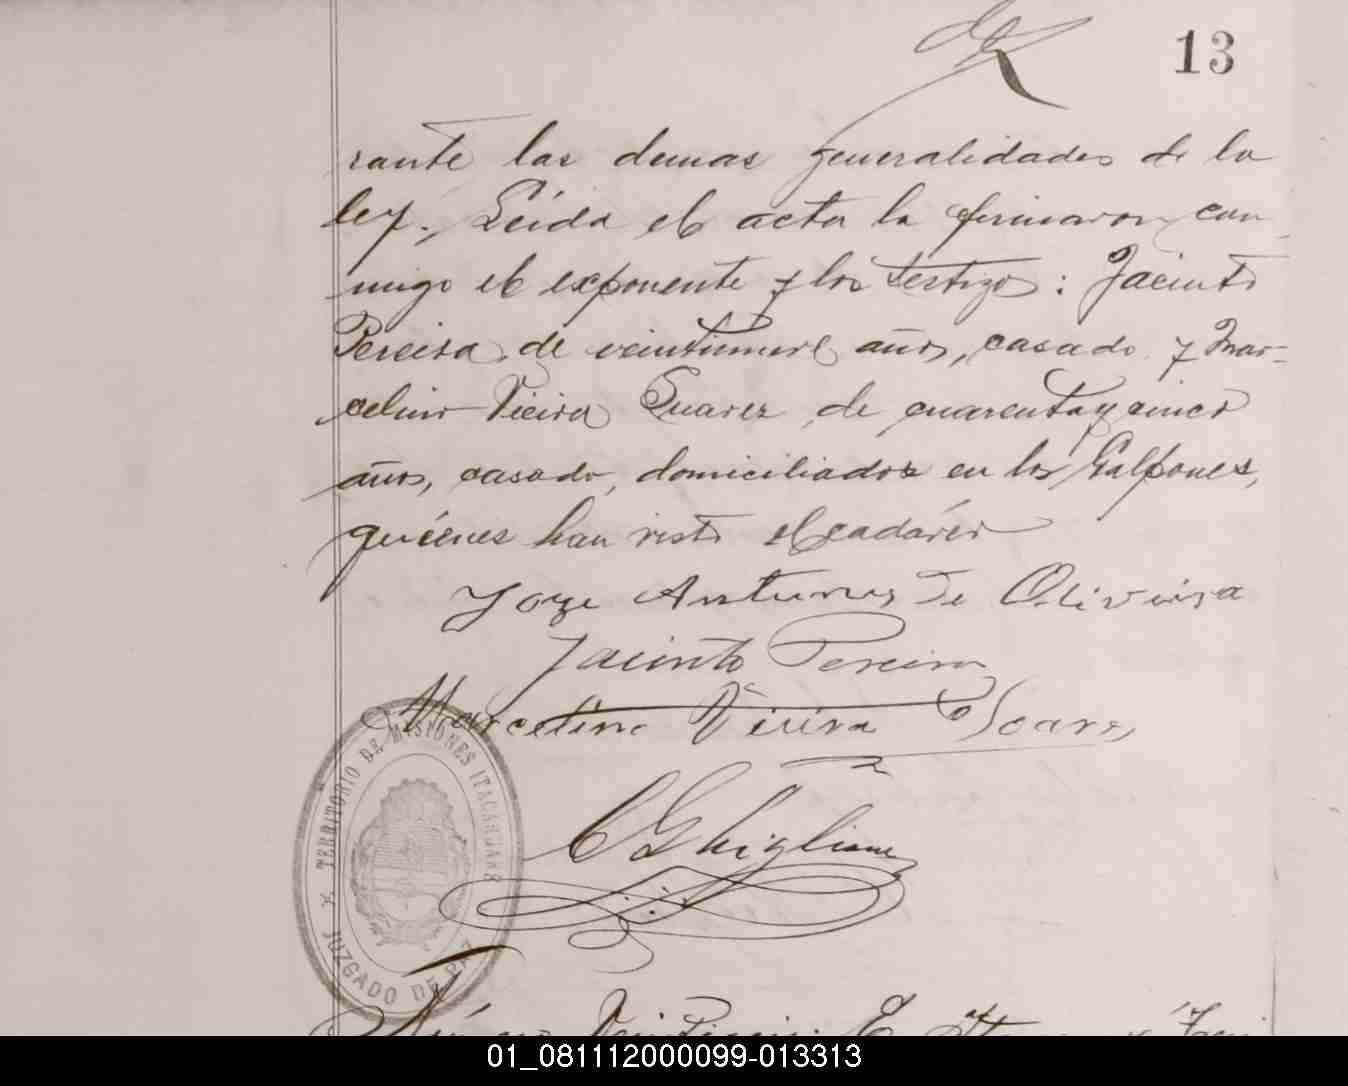 13
rante las demas generalidades de la
ley. Leida el acta la firmaron con
migo el exponente y los testigos: Jacinto
Pereira de veintinueve años, casado y Mar-
celino Vieira Suarez, de cuarenta y cinco
años, casado, domiciliados en los Galpones,
quienes han visto el cadáver
Joze Antunes de Oliveira
Jacinto Pereira
Marcelino Vieira Soares
C Ghiglione
TERRITORIO DE MISIONES ITACARUARE
JUZGADO DE PAZ
Número
01_081112000099-013313